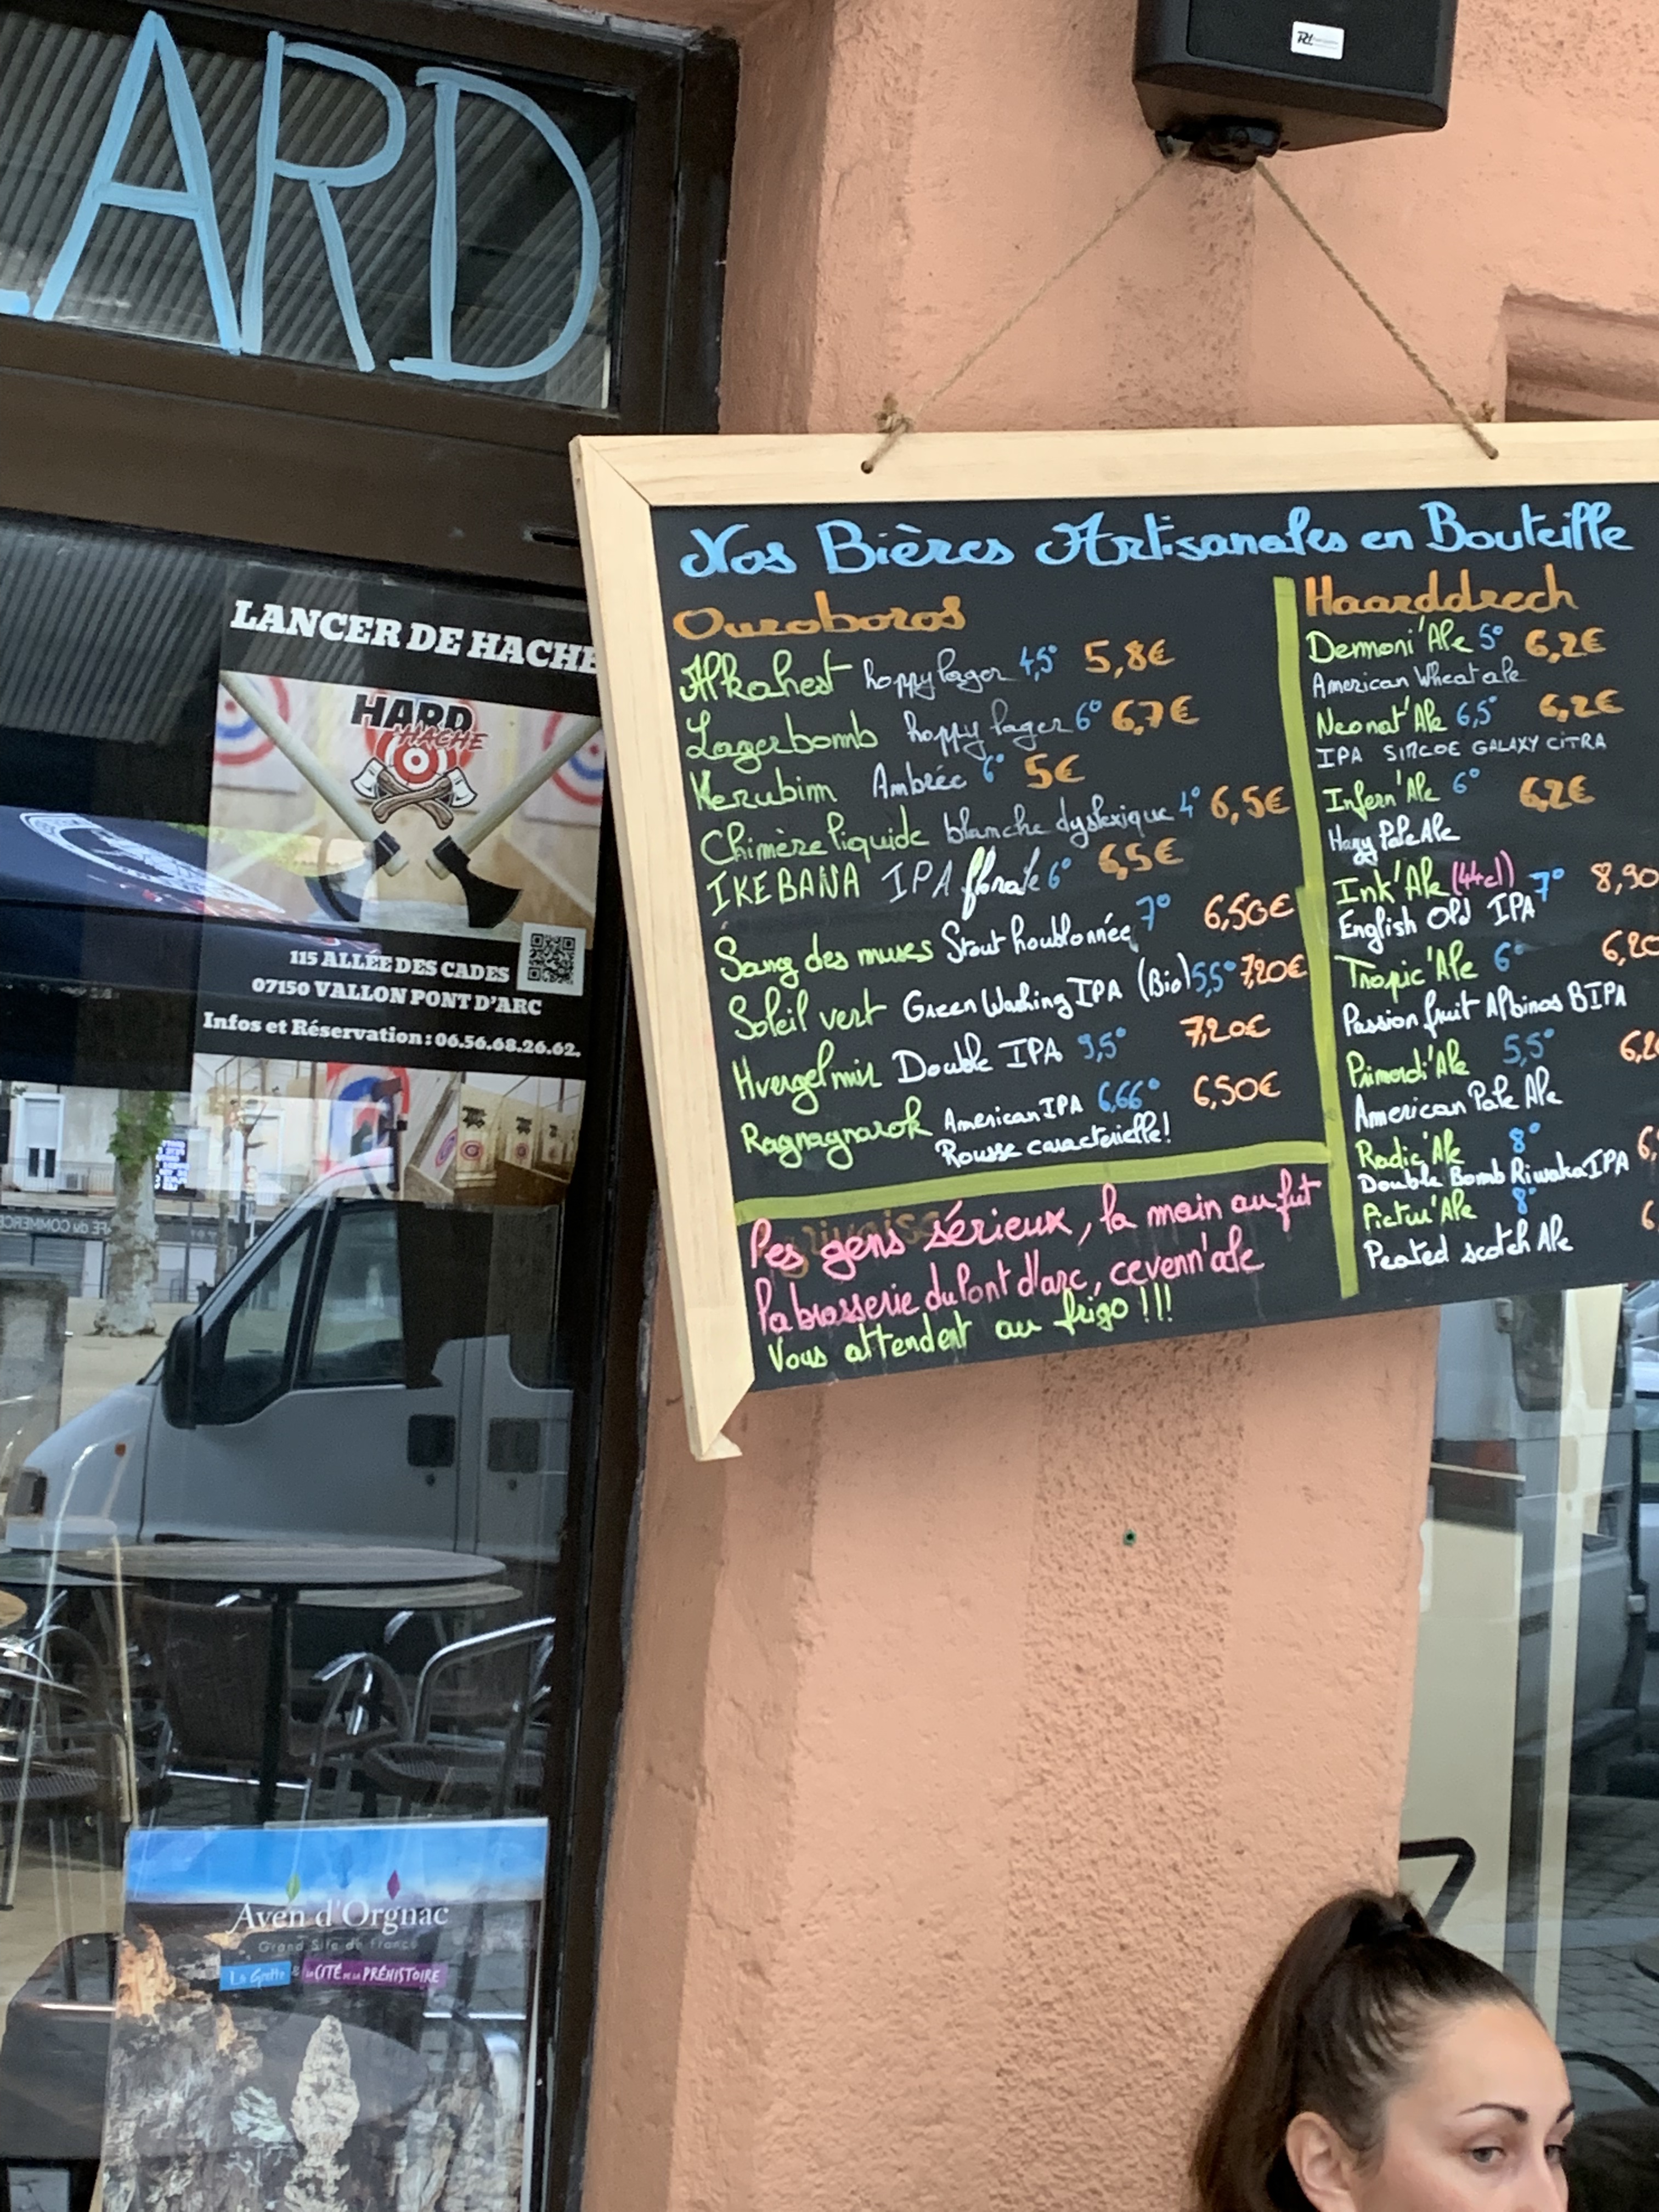 ARD
LANCER DE HACHE
HARD
HACHE
115 ALLÉE DES CADES
07150 VALLON PONT D'ARC
Infos et Réservation : 06.56.68.26.62.
Nos Bières Artisanales en Bouteille
Ouroboros
Alkahest hoppy lager 4,5° 5,8€
Lagerbomb hoppy lager 6° 6,7€
Kerubim Ambrée 6° 5€
Chimère liquide blanche dyslexique 4° 6,5€
IKEBANA IPA florale 6° 6,5€
Sang des muses Stout houblonnée 7° 6,50€
Soleil vert Green Washing IPA (Bio) 5,5° 7,20€
Hvergelmir Double IPA 9,5° 7,20€
Ragnagnarok American IPA 6,66° 6,50€
Rousse caractérielle!
Les gens sérieux, la main au fut
la brasserie du Pont d'arc, cevenn'ale
Vous attendent au frigo !!!
Haarddrech
Demoni'Ale 5° 6,2€
American Wheat ale
Neonat'Ale 6,5° 6,2€
IPA SIMCOE GALAXY CITRA
Infern'Ale 6° 6,2€
Hazy Pale Ale
Ink'Ale (44cl) 7° 8,90
English Old IPA
Tropic'Ale 6° 6,20
Passion fruit Albinos BIPA
Primordi'Ale 5,5° 6,2
American Pale Ale
Radic'Ale 8° 6,
Double Bomb Riwaka IPA
Pictur'Ale 8° 6,
Peated scotch Ale
Aven d'Orgnac
Grand Site de France
La Grotte & la CITÉ DE LA PRÉHISTOIRE